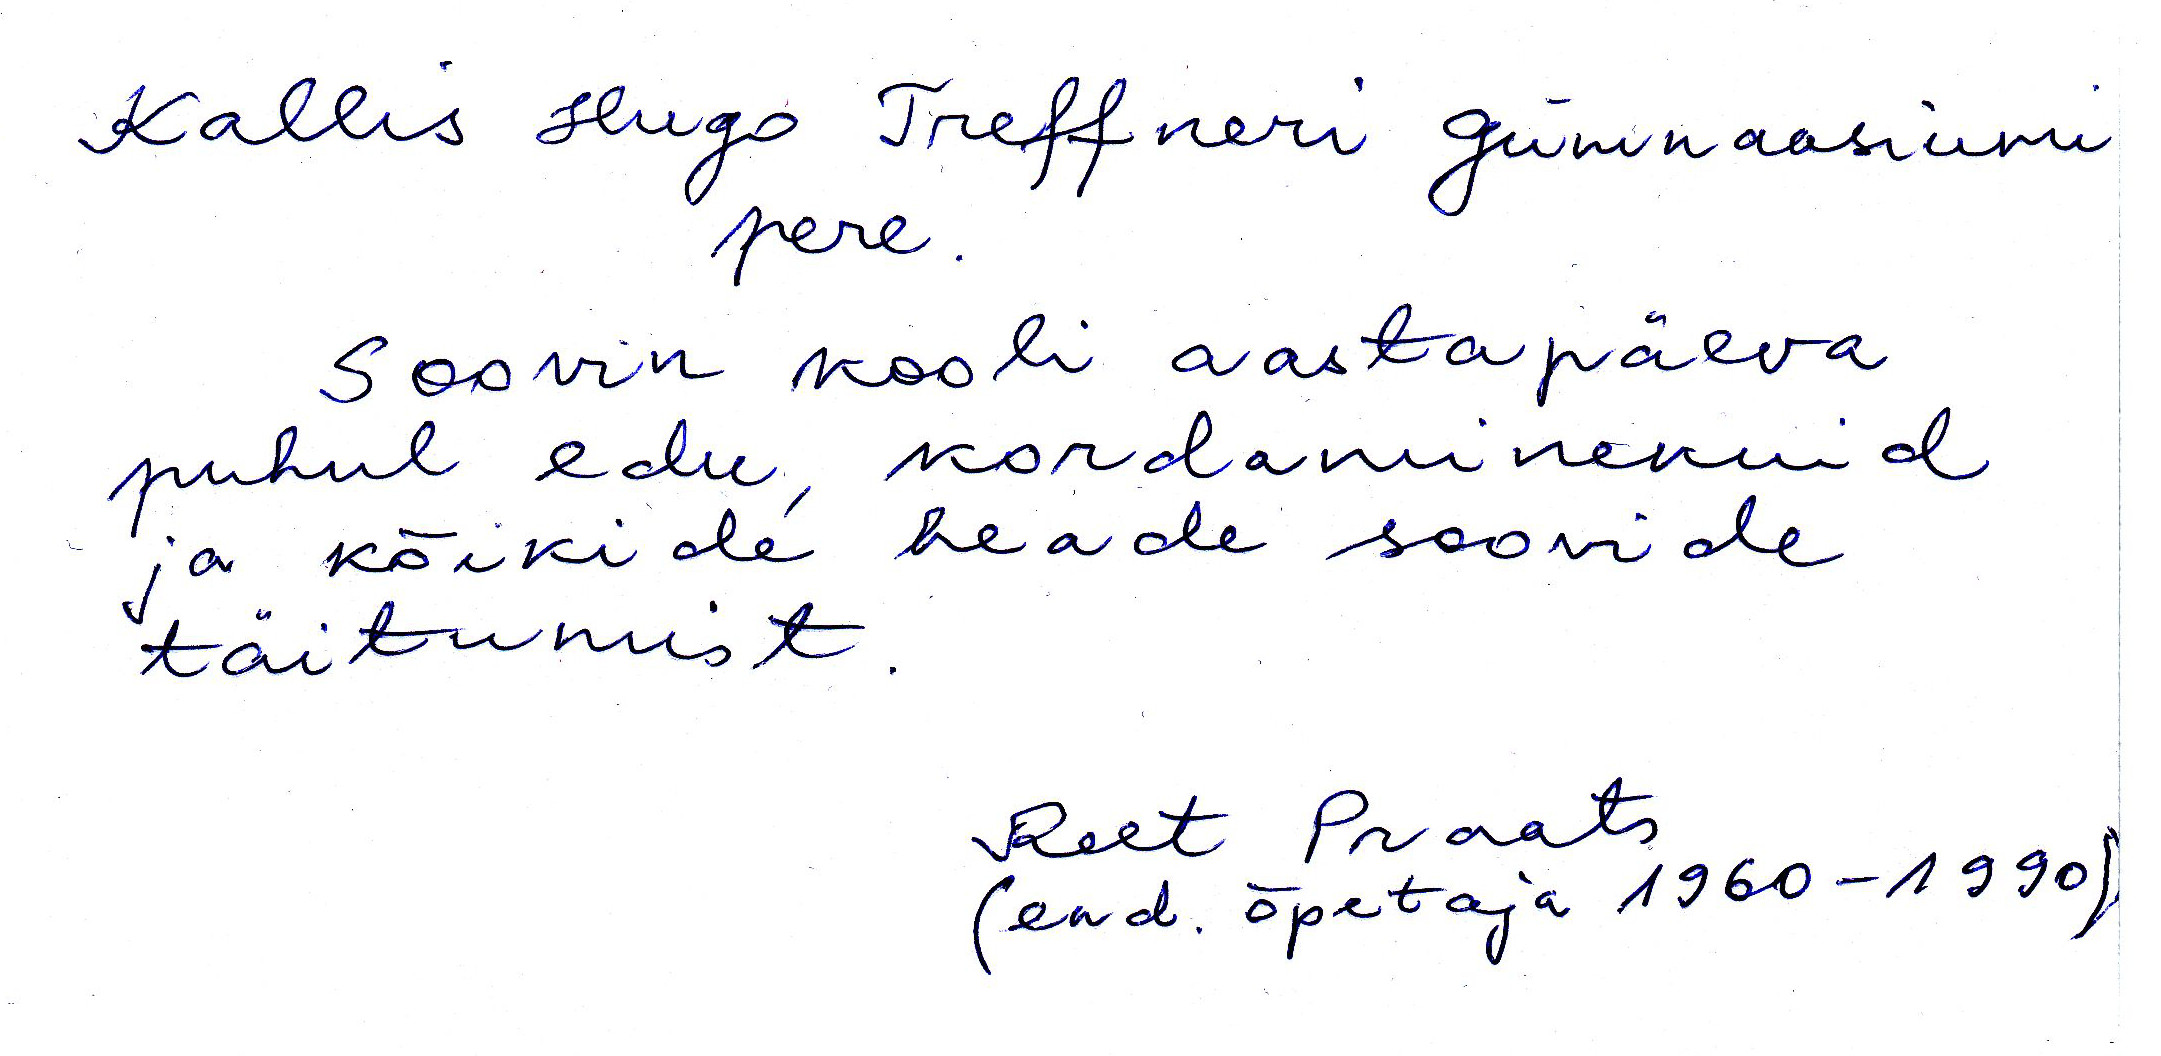 Kallis Hugo Treffneri Gümnaasiumi
pere.
Soovin kooli aastapäeva
puhul edu, kordaminekuid
ja kõikide heade soovide
täitumist.
Reet Praats
(end. õpetaja 1960-1990)